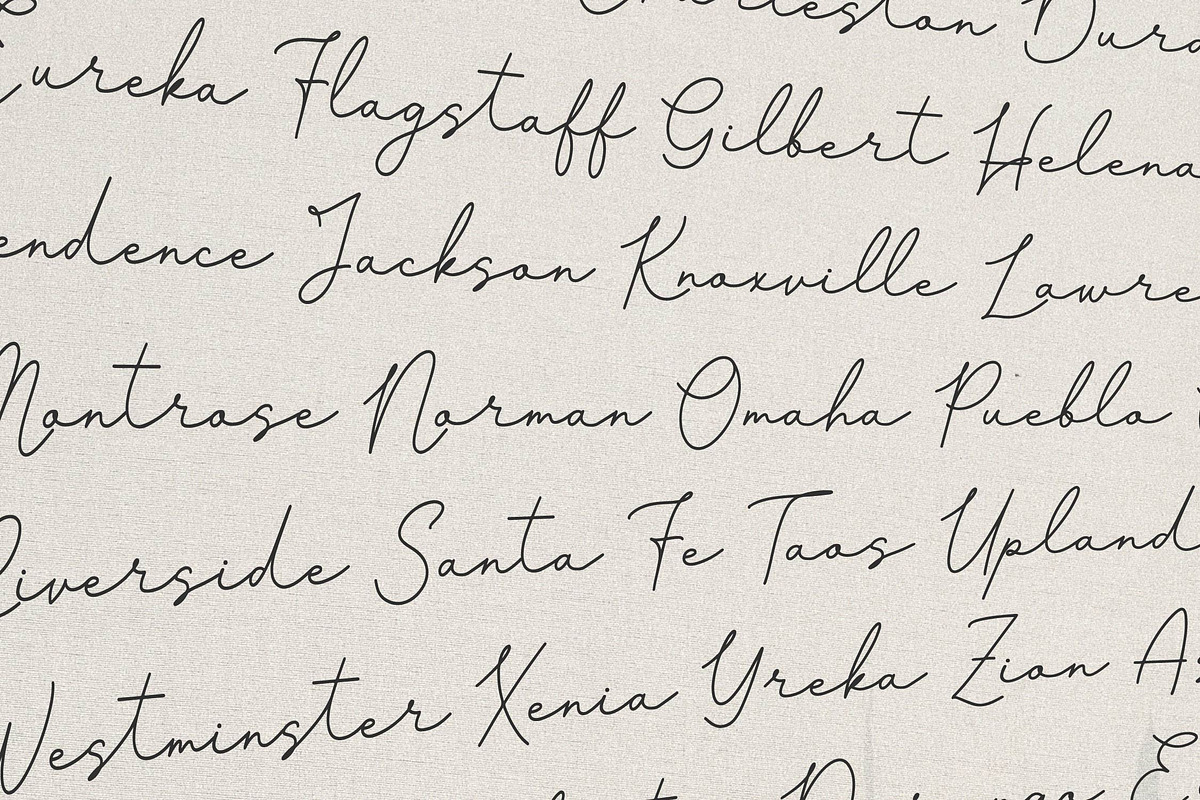 Charleston Dura
Eureka Flagstaff Gilbert Helena
endence Jackson Knoxville Lawre
Montrose Norman Omaha Pueblo
Riverside Santa Fe Taos Upland
Westminster Xenia Yreka Zion As